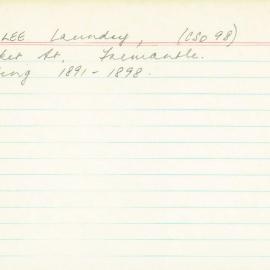 LEE Laundry, (CSO 98)
ket St, Fremantle.
ing 1891-1898.